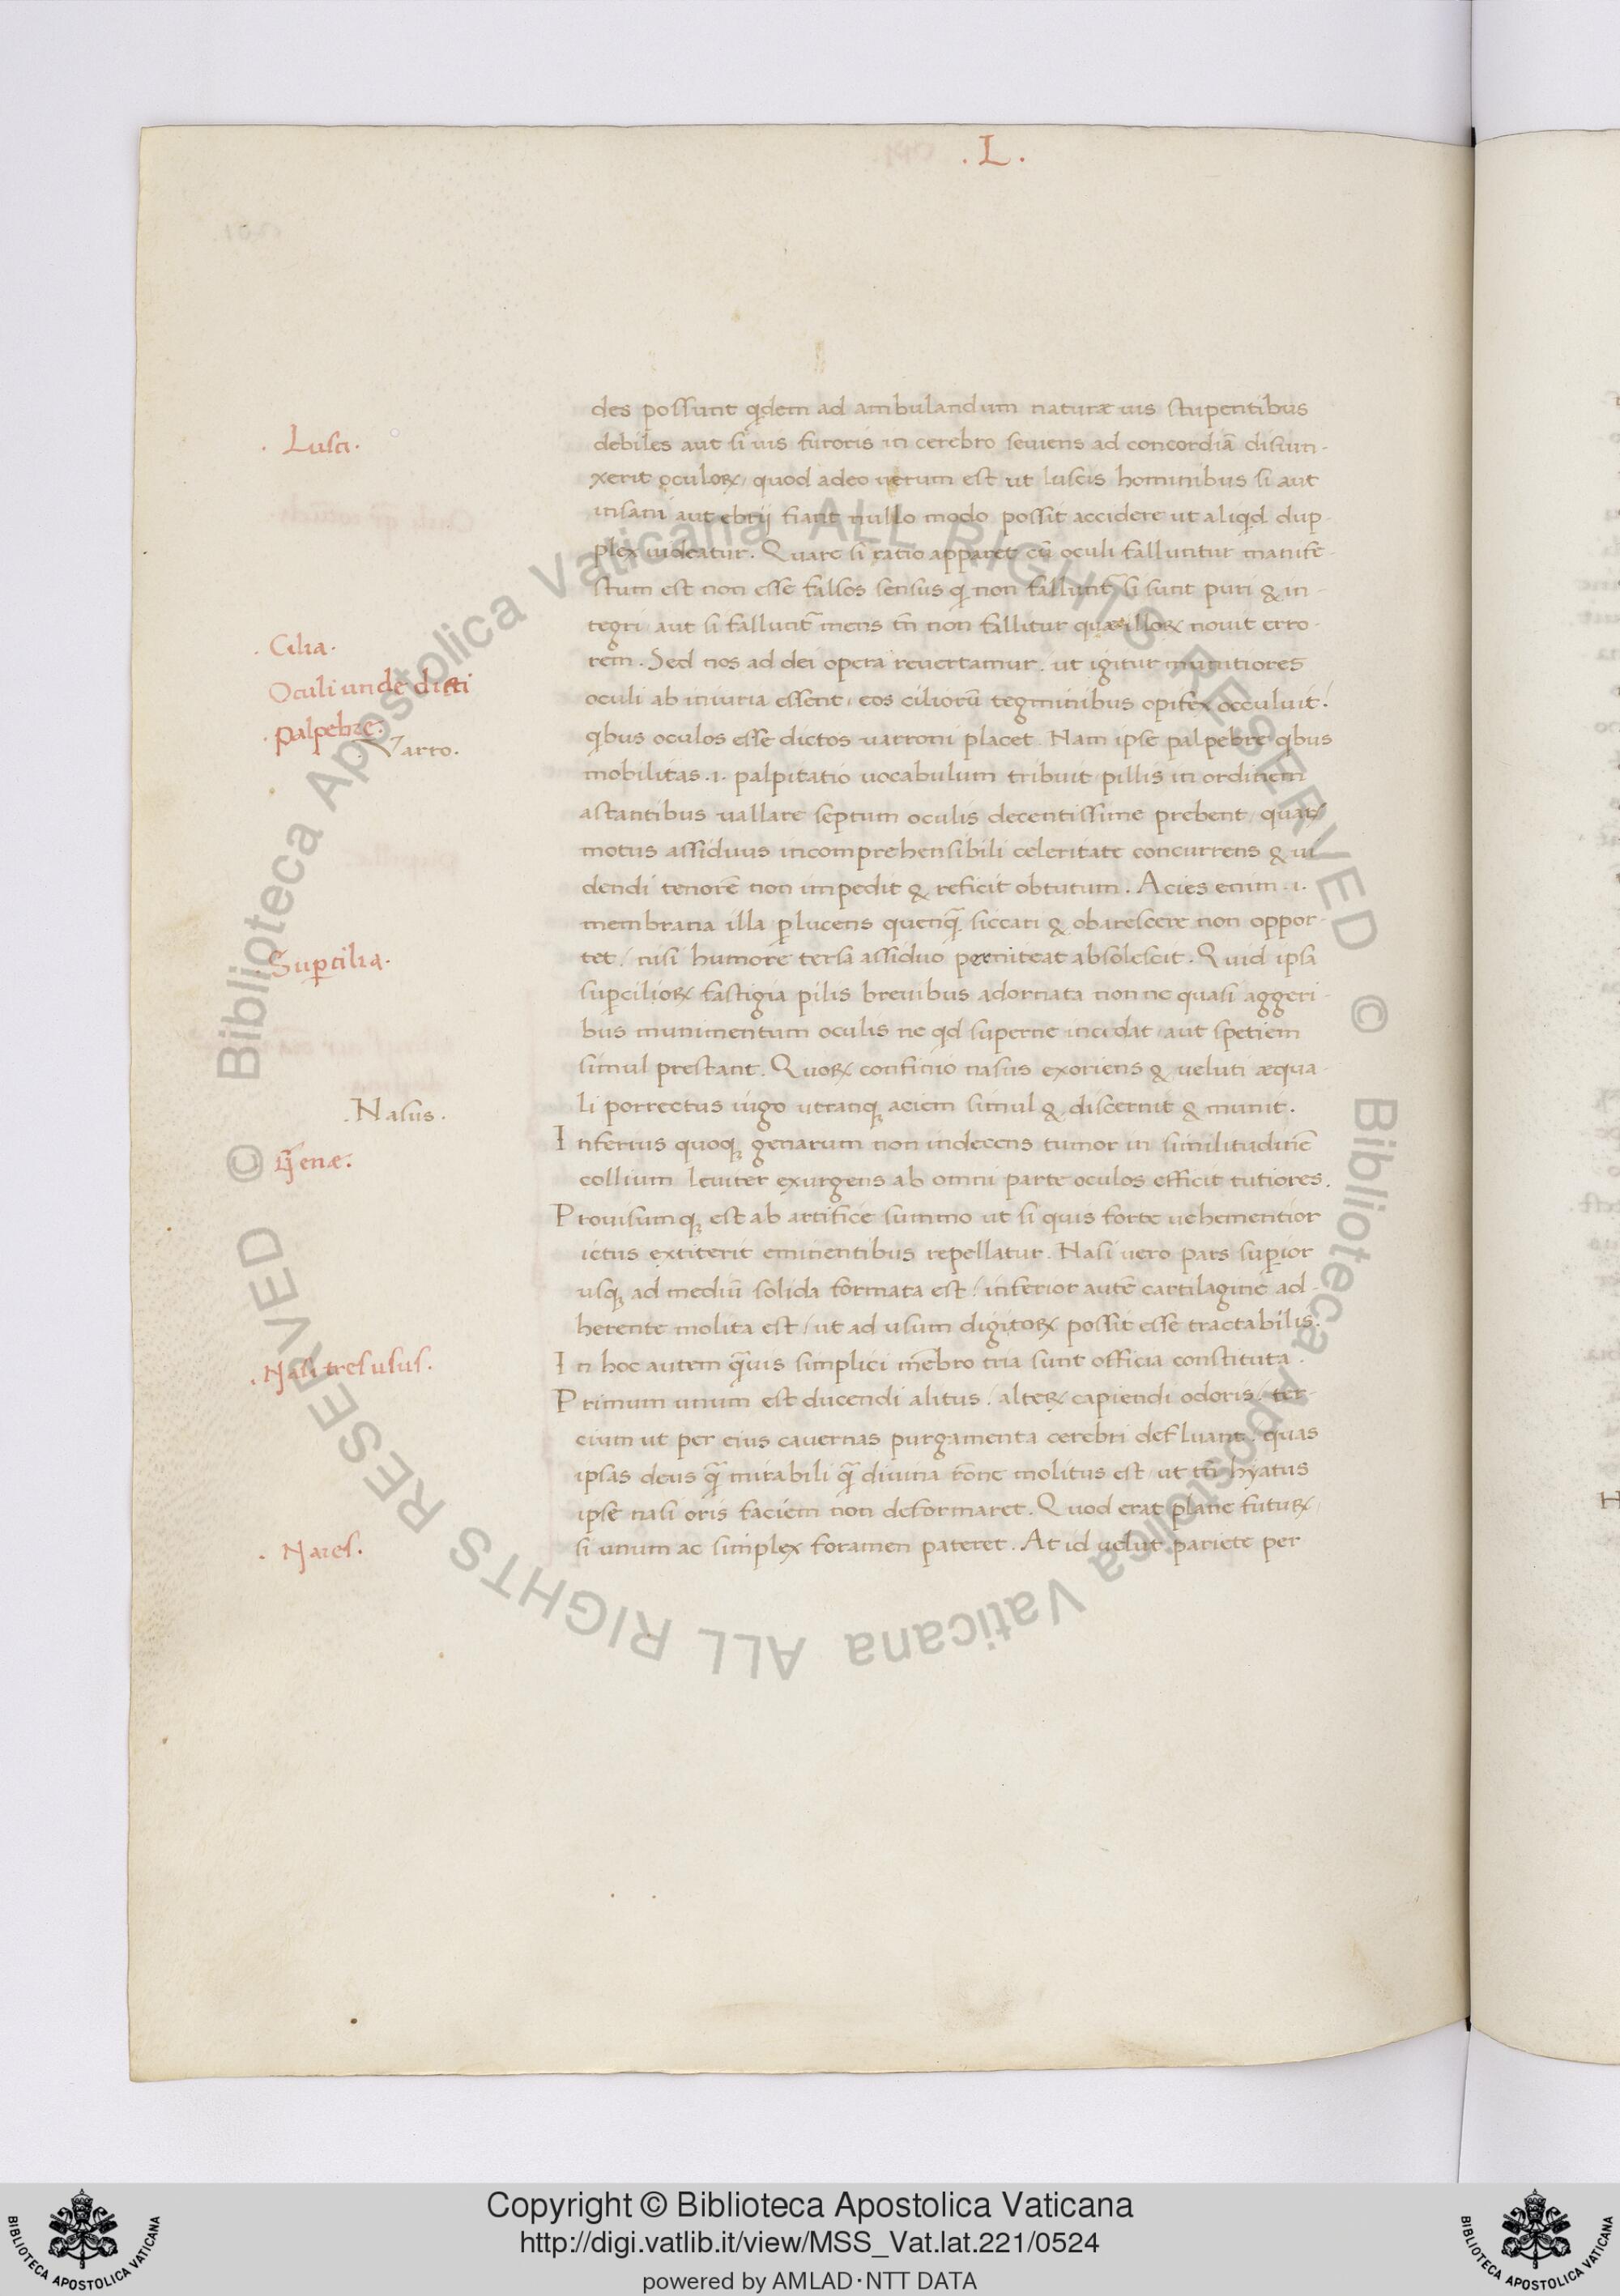 . L .
des possunt qdem ad ambulandum naturæ uis stupentibus
. Lusci.
debiles aut si uis furoris in cerebro seuiens ad concordiã disiun-
xerit oculoꝝ, quod adeo uerum est ut luscis hominibus si aut
insani aut ebrij fiant nullo modo possit accidere ut aliqd dup-
plex uideatur. Quare si ratio apparet cũ oculi falluntur manife-
stum est non esse falsos sensus q non fallunt̃ si sunt puri & in-
tegri / aut si fallunt̃ mens tñ non fallitur quæ illoꝝ nouit erro-
. Cilia.
rem. Sed nos ad dei opera reuertamur. ut igitur munitiores
Oculi unde dicti
oculi ab iniuria essent, eos ciliorũ tegminibus opifex occuluit.
. palpebre.
. Varro.
qbus oculos esse dictos varroni placet. Nam ipse palpebre qbus
mobilitas .i. palpitatio uocabulum tribuit pillis in ordinem
astantibus vallare septum oculis decentissime prebent, quaꝝ
motus assiduus incomprehensibili celeritate concurrens & ui
dendi tenorẽ non impedit & reficit obtutum. Acies enim .i.
membrana illa ꝑlucens quenq̃ siccari & obarescere non oppor-
. Suꝑcilia.
tet / nisi humore tersa assiduo perniteat absolescit. Quid ipsa
suꝑcilioꝝ fastigia pilis breuibus adornata non ne quasi aggeri-
bus munimentum oculis ne qd superne incidat aut spetiem
simul prestant. Quoꝝ confinio nasus exoriens & ueluti æqua-
. Nasus.
li porrectus iugo utranqꝫ aciem simul & discernit & munit.
Inferius quoqꝫ genarum non indecens tumor in similitudinẽ
Genæ.
collium leuiter exurgens ab omni parte oculos efficit tutiores.
Prouisumqꝫ est ab artifice summo ut si quis forte uehementior
ictus extiterit eminentibus repellatur. Nasi uero pars suꝑior
usqꝫ ad mediũ solida formata est / inferior autẽ cartilagine ad-
herente molita est / ut ad usum digitoꝝ possit esse tractabilis.
. Nasi tres usus.
In hoc autem q̃uis simplici mẽbro tria sunt officia constituta.
Primum unum est ducendi alitus / alteꝝ capiendi odoris / ter-
cium ut per eius cauernas purgamenta cerebri defluant. quas
ipsas deus q̃ mirabili q̃ diuina rõne molitus est / ut tñ hyatus
ipse nasi oris faciem non deformaret. Quod erat plane futuꝝ,
. Nares.
si unum ac simplex foramen pateret. At id uelut pariete per
© Biblioteca Apostolica Vaticana ALL RIGHTS RESERVED
© Biblioteca Apostolica Vaticana ALL RIGHTS RESERVED
Copyright © Biblioteca Apostolica Vaticana
http://digi.vatlib.it/view/MSS_Vat.lat.221/0524
powered by AMLAD·NTT DATA
BIBLIOTECA APOSTOLICA VATICANA
BIBLIOTECA APOSTOLICA VATICANA